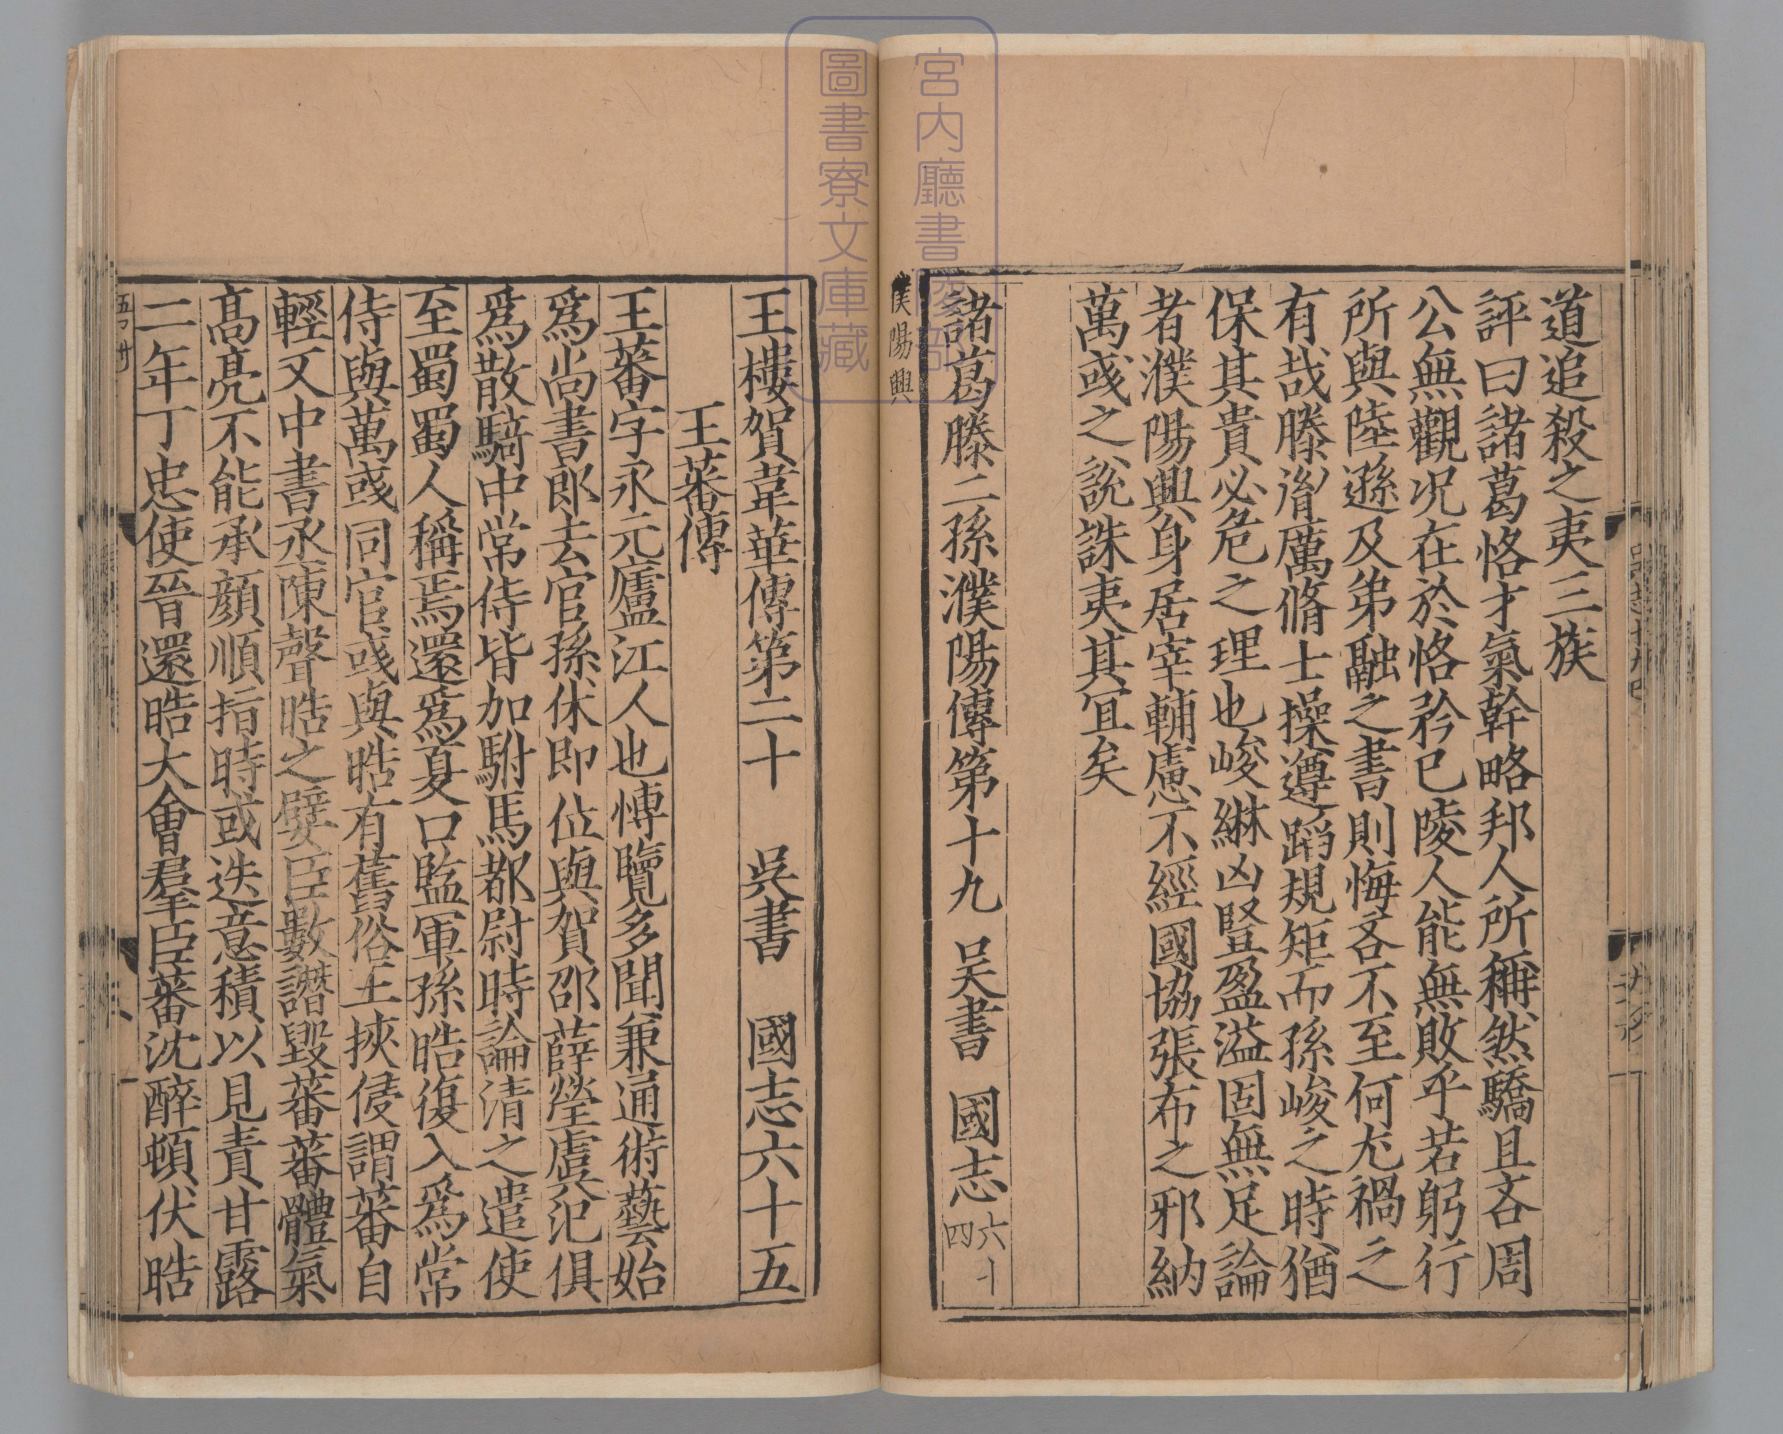 道追殺之夷三族
評曰諸葛恪才氣幹略邦人所稱然驕且吝周
公無觀况在於恪矜已陵人能無敗乎若躬行
所與陸遜及弟融之書則悔吝不至何尤禍之
有哉滕㣧厲脩士操遵蹈規矩而孫峻之時猶
保其貴必危之理也峻綝凶豎盈溢固無足論
者濮陽興身居宰輔慮不經國協張布之邪納
萬彧之說誅夷其冝矣
諸葛滕二孫濮陽傳第十九 吴書 國志六十四
濮陽興
王樓賀韋華傳第二十 吳書 國志六十五
王蕃傳
王蕃字永元廬江人也愽覽多聞兼通術藝始
爲尚書郎去官孫休即位與賀邵薛瑩虞汜俱
爲散騎中常侍皆加駙馬都尉時論清之遣使
至蜀蜀人稱焉還爲夏口監軍孫皓復入爲常
侍與萬彧同官彧與皓有舊俗士挾侵謂蕃自
輕又中書丞陳聲皓之嬖臣數譖毀蕃蕃體氣
髙亮不能承顔順指時或迕意積以見責甘露
二年丁忠使晉還皓大會羣臣蕃沈醉頓伏皓
宮内廳書陵部
圖書寮文庫藏